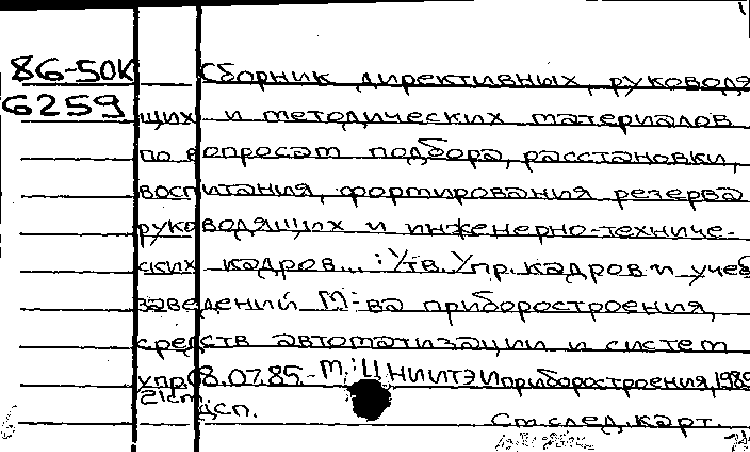 86-50К Сборник директивных, руководя
6259 щих и методических материалов
по вопросам подбора, расстановки,
воспитания, формирования резерва
руководящих и инженерно-техниче-
ских кадров... : Утв. Упр. кадров и учеб
заведений М-ва приборостроения,
средств автоматизации и систем
упр. 08.07.85. - М.: ЦНИИТЭИприборостроения, 1985
ДСП.
См. след. карт.